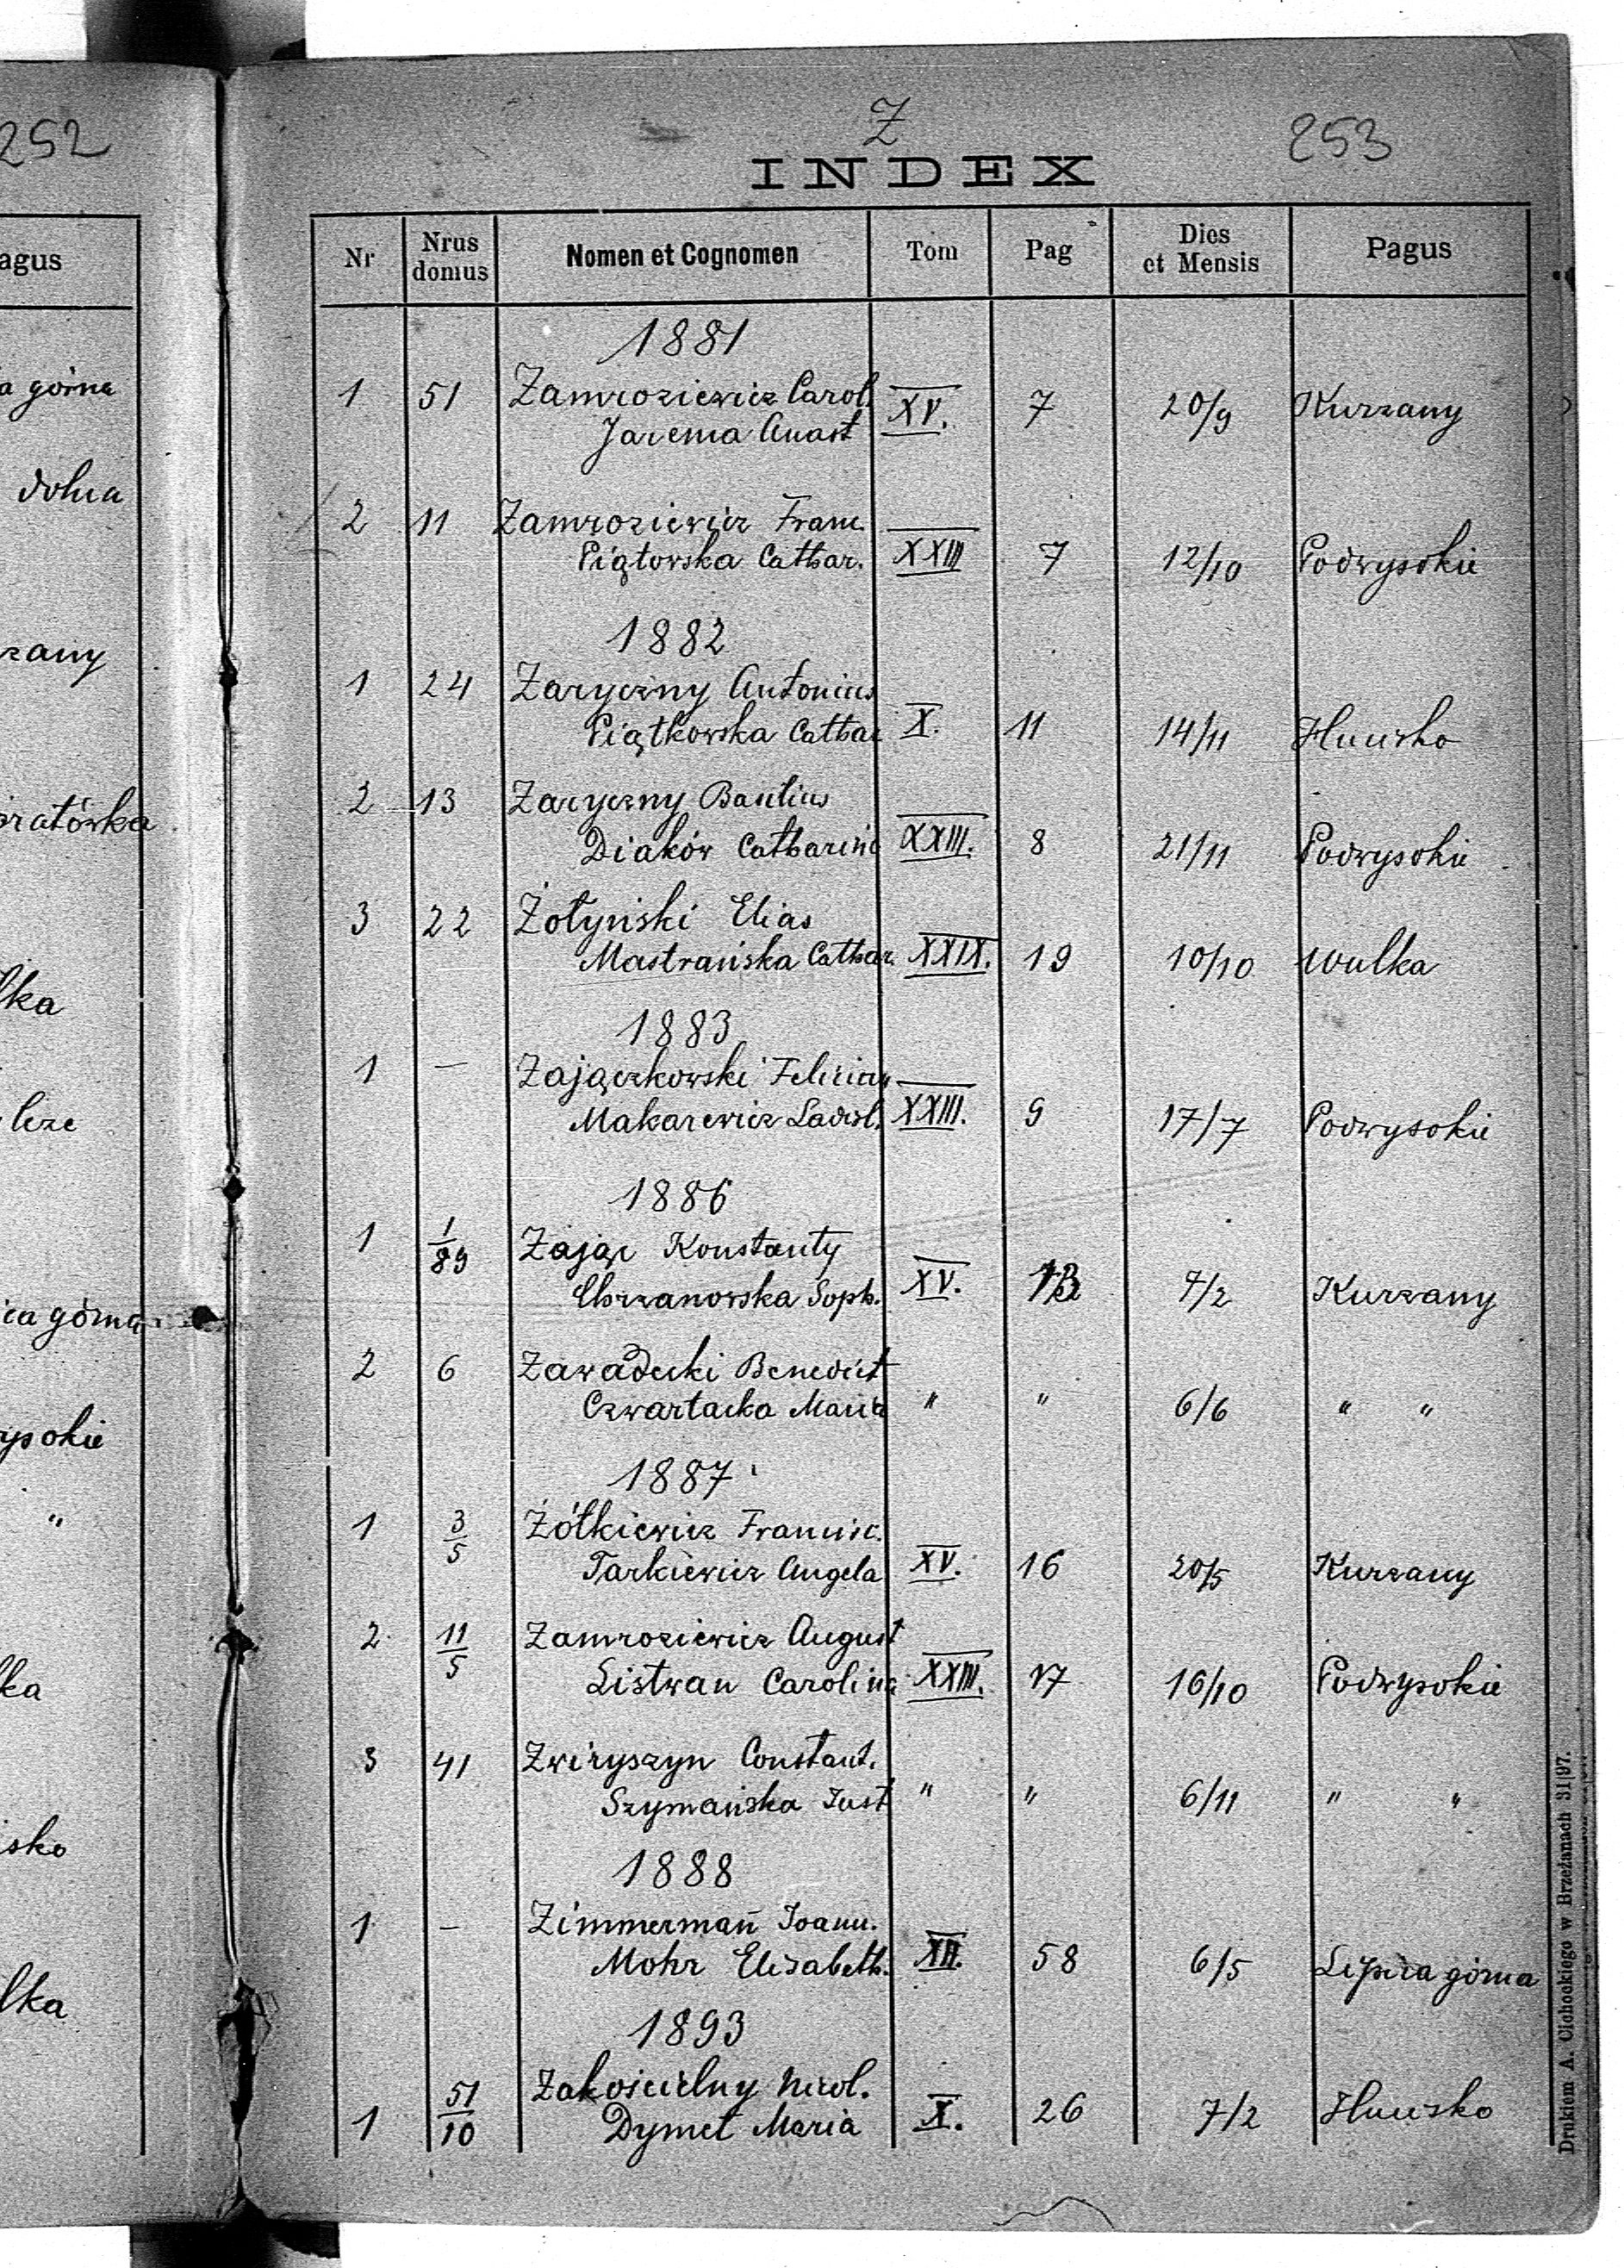 252
agus
a górna
dolna
rzany
oratówka
lka
leze
ica górna
ysokie
"
ka
isko
lka
Z
253
INDEX
Nr Nrus domus Nomen et Cognomen Tom Pag Dies et Mensis Pagus
1881
1 51 Zamroziewicz Carol.
Jarema Anast XV. 7 20/9 Kurzany
2 11 Zamroziewicz Franc.
Piątowska Cathar. XXIII 7 12/10 Podwysokie
1882
1 24 Zaryczny Antonius
Piątkowska Cathar X. 11 14/11 Hucisko
2 13 Zaryczny Basilius
Diaków Catharina XXIII. 8 21/11 Podwysokie
3 22 Żołyński Elias
Mastrańska Cathar. XXIX. 19 10/10 Wulka
1883
1 — Zajączkowski Felician
Makarewicz Ladisl. XXIII. 9 17/7 Podwysokie
1886
1 1/89 Zając Konstanty
Chrzanowska Soph. XV. 7/2 Kurzany
2 6 Zawadecki Benedict
Czwartacka Maria " " 6/6 " "
1887
1 3/5 Żółkiewicz Francisc.
Tarkiewicz Angela XV. 16 20/5 Kurzany
2 11/5 Zamroziewicz August
Listwan Carolina XXIII. 17 16/10 Podwysokie
3 41 Zwiryszyn Constant.
Szymańska Just " " 6/11 " "
1888
1 — Zimmermañ Joann.
Mohr Elisabeth. XII. 58 6/5 Lipica górna
1893
1 51/10 Zakościelny Nicol.
Dymet Maria X. 26 7/2 Hucisko
Drukiem A. Cichockiego w Brzeżanach 31|97.